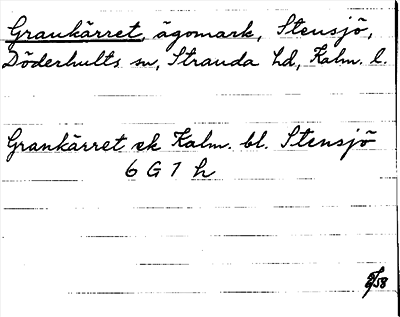 Grankärret, ägomark, Stensjö,
Döderhults sn, Stranda hd, Kalm. l.
Grankärret ek Kalm. bl. Stensjö
6 G 1 h